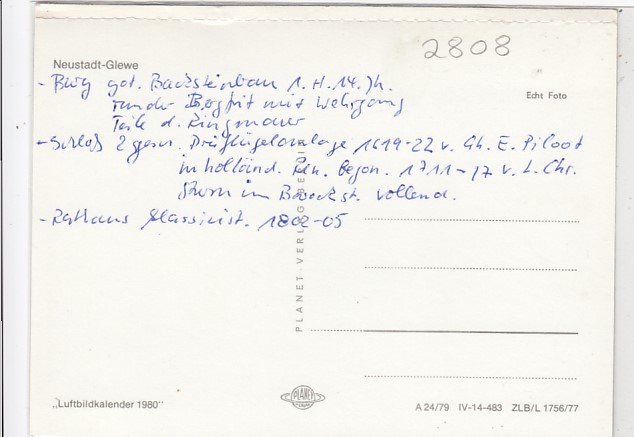 2808
Neustadt-Glewe
Echt Foto
- Burg got. Backsteinbau 1. H. 14. Jh.
runder Bergfrit mit Wehrgang
Teile d. Ringmauer
- Schloß 2 gesch. Dreiflügelanlage 1619-22 v. Gh. E. Piloot
in holländ. Ren. begon. 1711-17 v. L. Chr.
Sturm im Barockst. vollend.
- Rathaus klassizist. 1802-05
PLANET VERLAG BERLIN
„Luftbildkalender 1980"
PLANET
A 24/79 IV-14-483 ZLB/L 1756/77